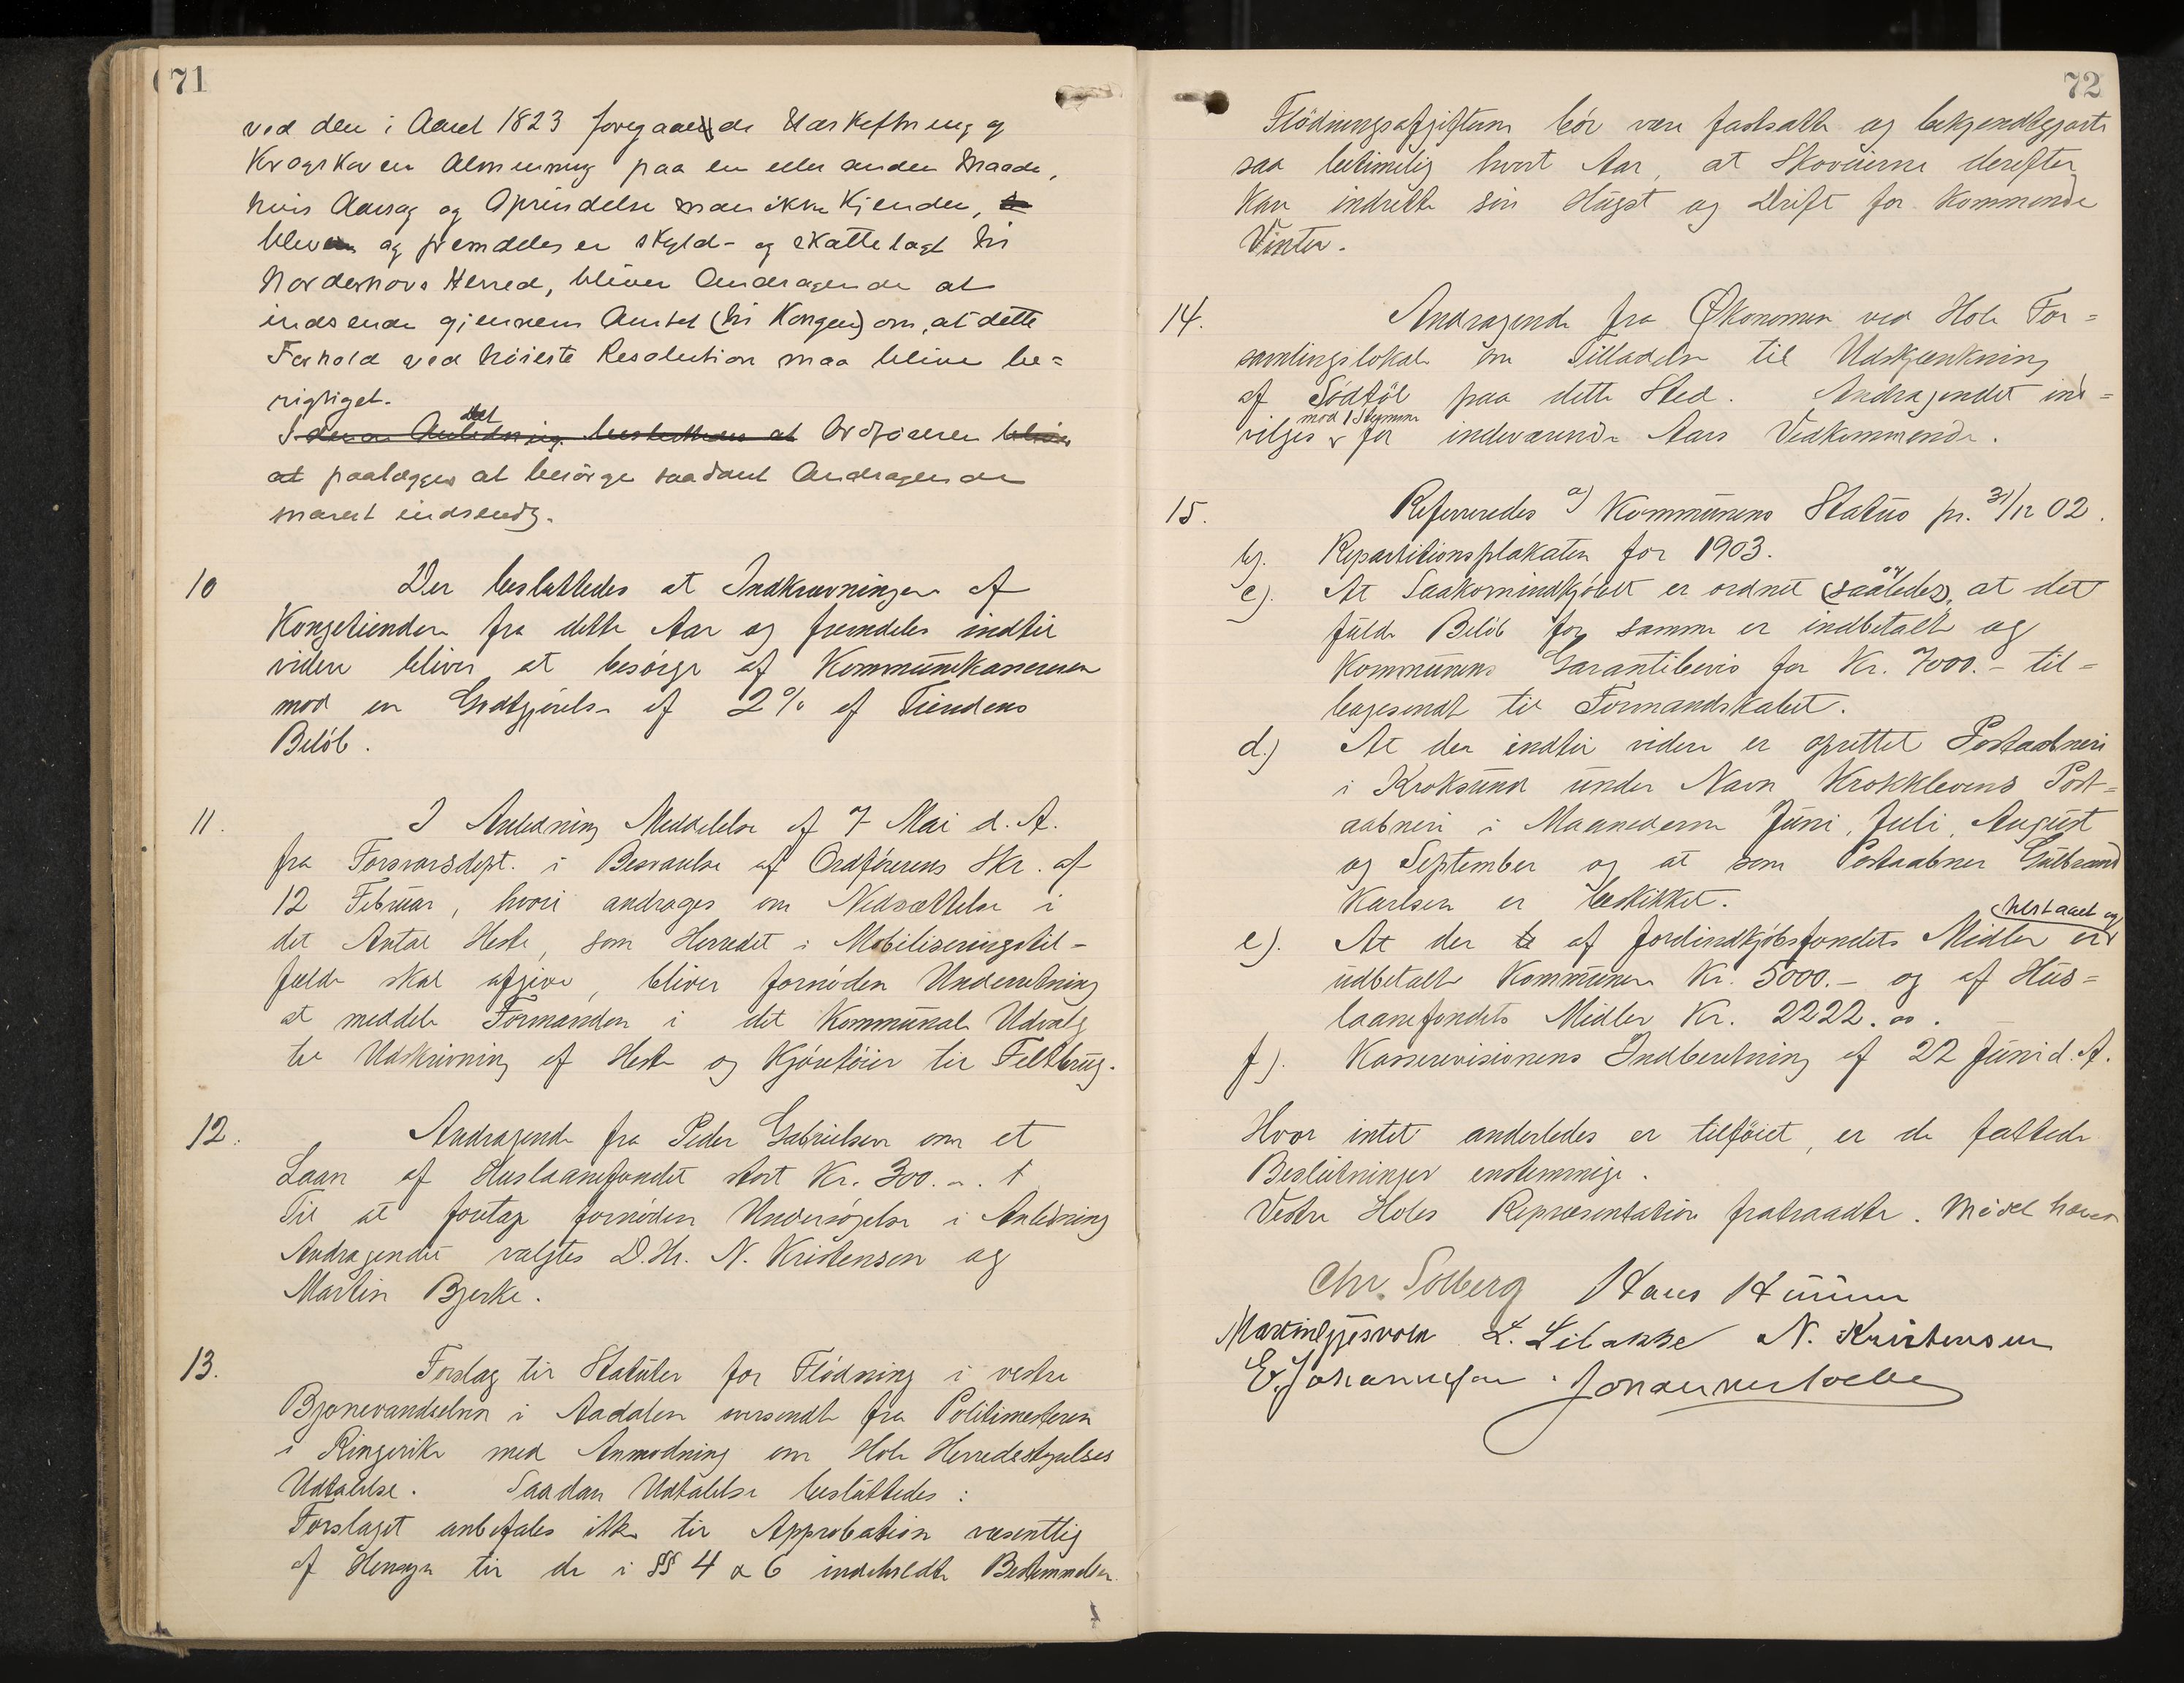 71
ved den i Aaret 1823 foregaaende Udskiftning og
Krogskoven Almenning paa en eller anden Maade,
hvis Aarsag og Oprindelse man ikke kjender,
blev og fremdeles er skyld- og skattelagt til
Norderhovs Herred, bliver Andragende at
indsende gjennem Amtet (til Kongen) om, at dette
Forhold ved høieste Resolution maa blive be=
rigtiget.
Det Ordføreren
paalægges at besörge saadant Andragende
snarest indsendt.
10 Der besluttedes at Indkrævningen af
Kongetienden fra dette Aar og fremdeles indtil
videre bliver at besørge af Kommunekassereren
mod en Godtgjørelse af 2% af Tiendens
Belöb.
11. I Anledning Meddelelse af 7 Mai d. A.
fra Forsvarsdept. i Besvarelse af Ordførerens Skr. af
12 Februar, hvori andrages om Nedsættelse i
det Antal Heste, som Herredet i Mobiliseringstil-
fælde skal afgive, bliver fornøden Underretning
at meddele Formanden i det Kommunale Udvalg
til Udskrivning af Heste og Kjøretøier til Feltbrug.
12. Andragende fra Peder Gabrielsen om et
Laan af Huslaanefondet stort Kr. 300.-.
Til at foretage fornøden Undersøgelse i Anledning
Andragendet valgtes D.Hr. N. Kristensen og
Martin Bjerke.
13. Forslag til Statuter for Flödning i vestre
Bjonevandselven i Aadalen oversendt fra Politimesteren
i Ringerike med Anmodning om Hole Herredsstyrelses
Udtalelse. Saadan Udtalelse besluttedes:
Forslaget anbefales ikke til Approbation væsentlig
af Hensyn til de i §§ 4 & 6 indeholdte Bestemmelser.
72
Flödningsafgiften bör være fastsatte og bekjendtgjorte
saa betimelig hvert Aar, at Skoveierne derefter
kan indrette sin Hugst og Drift for kommende
Vinter.
14. Andragende fra Økonomen ved Hole For=
samlingslokale om Tilladelse til Udskjænkning
af Södtöl paa dette Sted. Andragendet ind=
mod 1 Stemme
vilges for indeværende Aars Vedkommende.
15. Refereredes a) Kommunens Status pr. 31/12 02.
b). Repartitionsplakaten for 1903.
og
c). At Saakornindkjöbet er ordnet (saaledes), at det
fulde Belöb for samme er indbetalt og
Kommunens Garantibevis for Kr. 7000.- til=
bagesendt til Formandskabet.
d.) At der indtil videre er oprettet Postaabneri
i Kroksund under Navn Krokklevens Post=
aabneri i Maanederne Juni, Juli, August
og September og at som Postaabner Gulbrand
Karlsen er beskikket.
tilstaaet og
e). At der af Jordindkjöbsfondets Midler er
udbetalt Kommunen Kr. 5000.- og af Hus=
laanefondets Midler Kr. 2222.00.
f). Kasserevisionens Indberetning af 22 Juni d. A.
Hvor intet anderledes er tilföiet, er de fattede
Beslutninger enstemmige.
Vestre Holes Repræsentation fratraadte. Mødet hævet
Chr. Solberg Hans
Martin Gjesvold L. Libakke N. Kristensen
E. Johannesen.